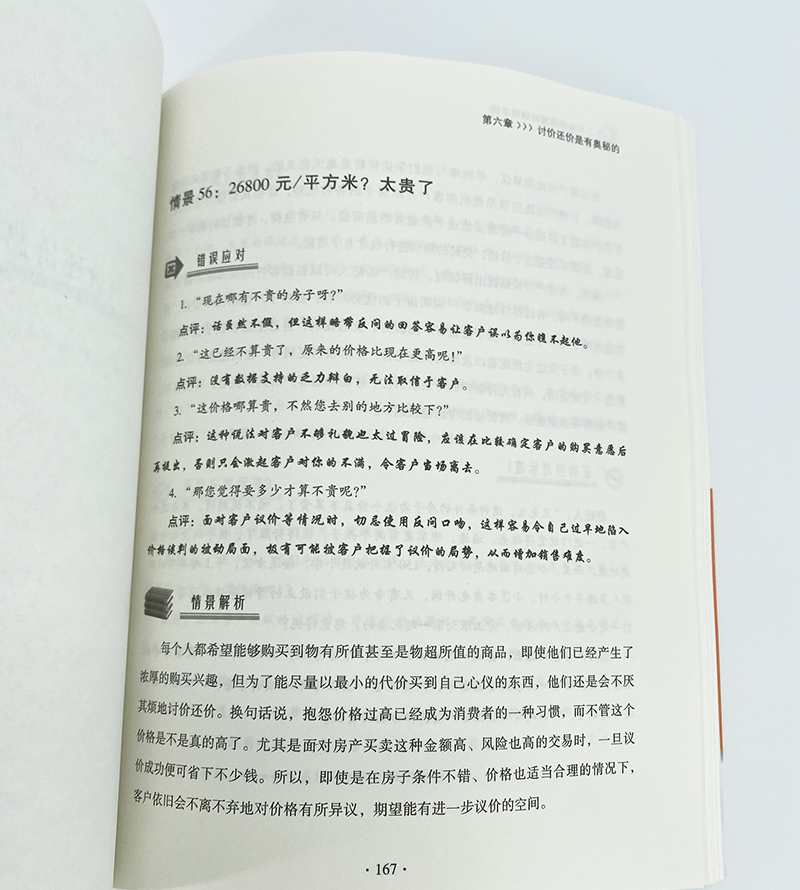 第六章 >>> 讨价还价是有奥秘的
情景 56：26800 元/平方米？太贵了
错误应对
1. “现在哪有不贵的房子呀？”
点评：话虽然不假，但这样略带反问的回答容易让客户误以为你瞧不起他。
2. “这已经不算贵了，原来的价格比现在更高呢！”
点评：没有数据支持的乏力辩白，无法取信于客户。
3. “这价格哪算贵，不然您去别的地方比较下？”
点评：这种说法对客户不够礼貌也太过冒险，应该在比较确定客户的购买意愿后
再提出，否则只会激起客户对你的不满，令客户当场离去。
4. “那您觉得要多少才算不贵呢？”
点评：面对客户议价等情况时，切忌使用反问口吻，这样容易令自己过早地陷入
价格谈判的被动局面，极有可能被客户把握了议价的局势，从而增加销售难度。
情景解析
每个人都希望能够购买到物有所值甚至是物超所值的商品，即使他们已经产生了
浓厚的购买兴趣，但为了能尽量以最小的代价买到自己心仪的东西，他们还是会不厌
其烦地讨价还价。换句话说，抱怨价格过高已经成为消费者的一种习惯，而不管这个
价格是不是真的高了。尤其是面对房产买卖这种金额高、风险也高的交易时，一旦议
价成功便可省下不少钱。所以，即使是在房子条件不错、价格也适当合理的情况下，
客户依旧会不离不弃地对价格有所异议，期望能有进一步议价的空间。
· 167 ·